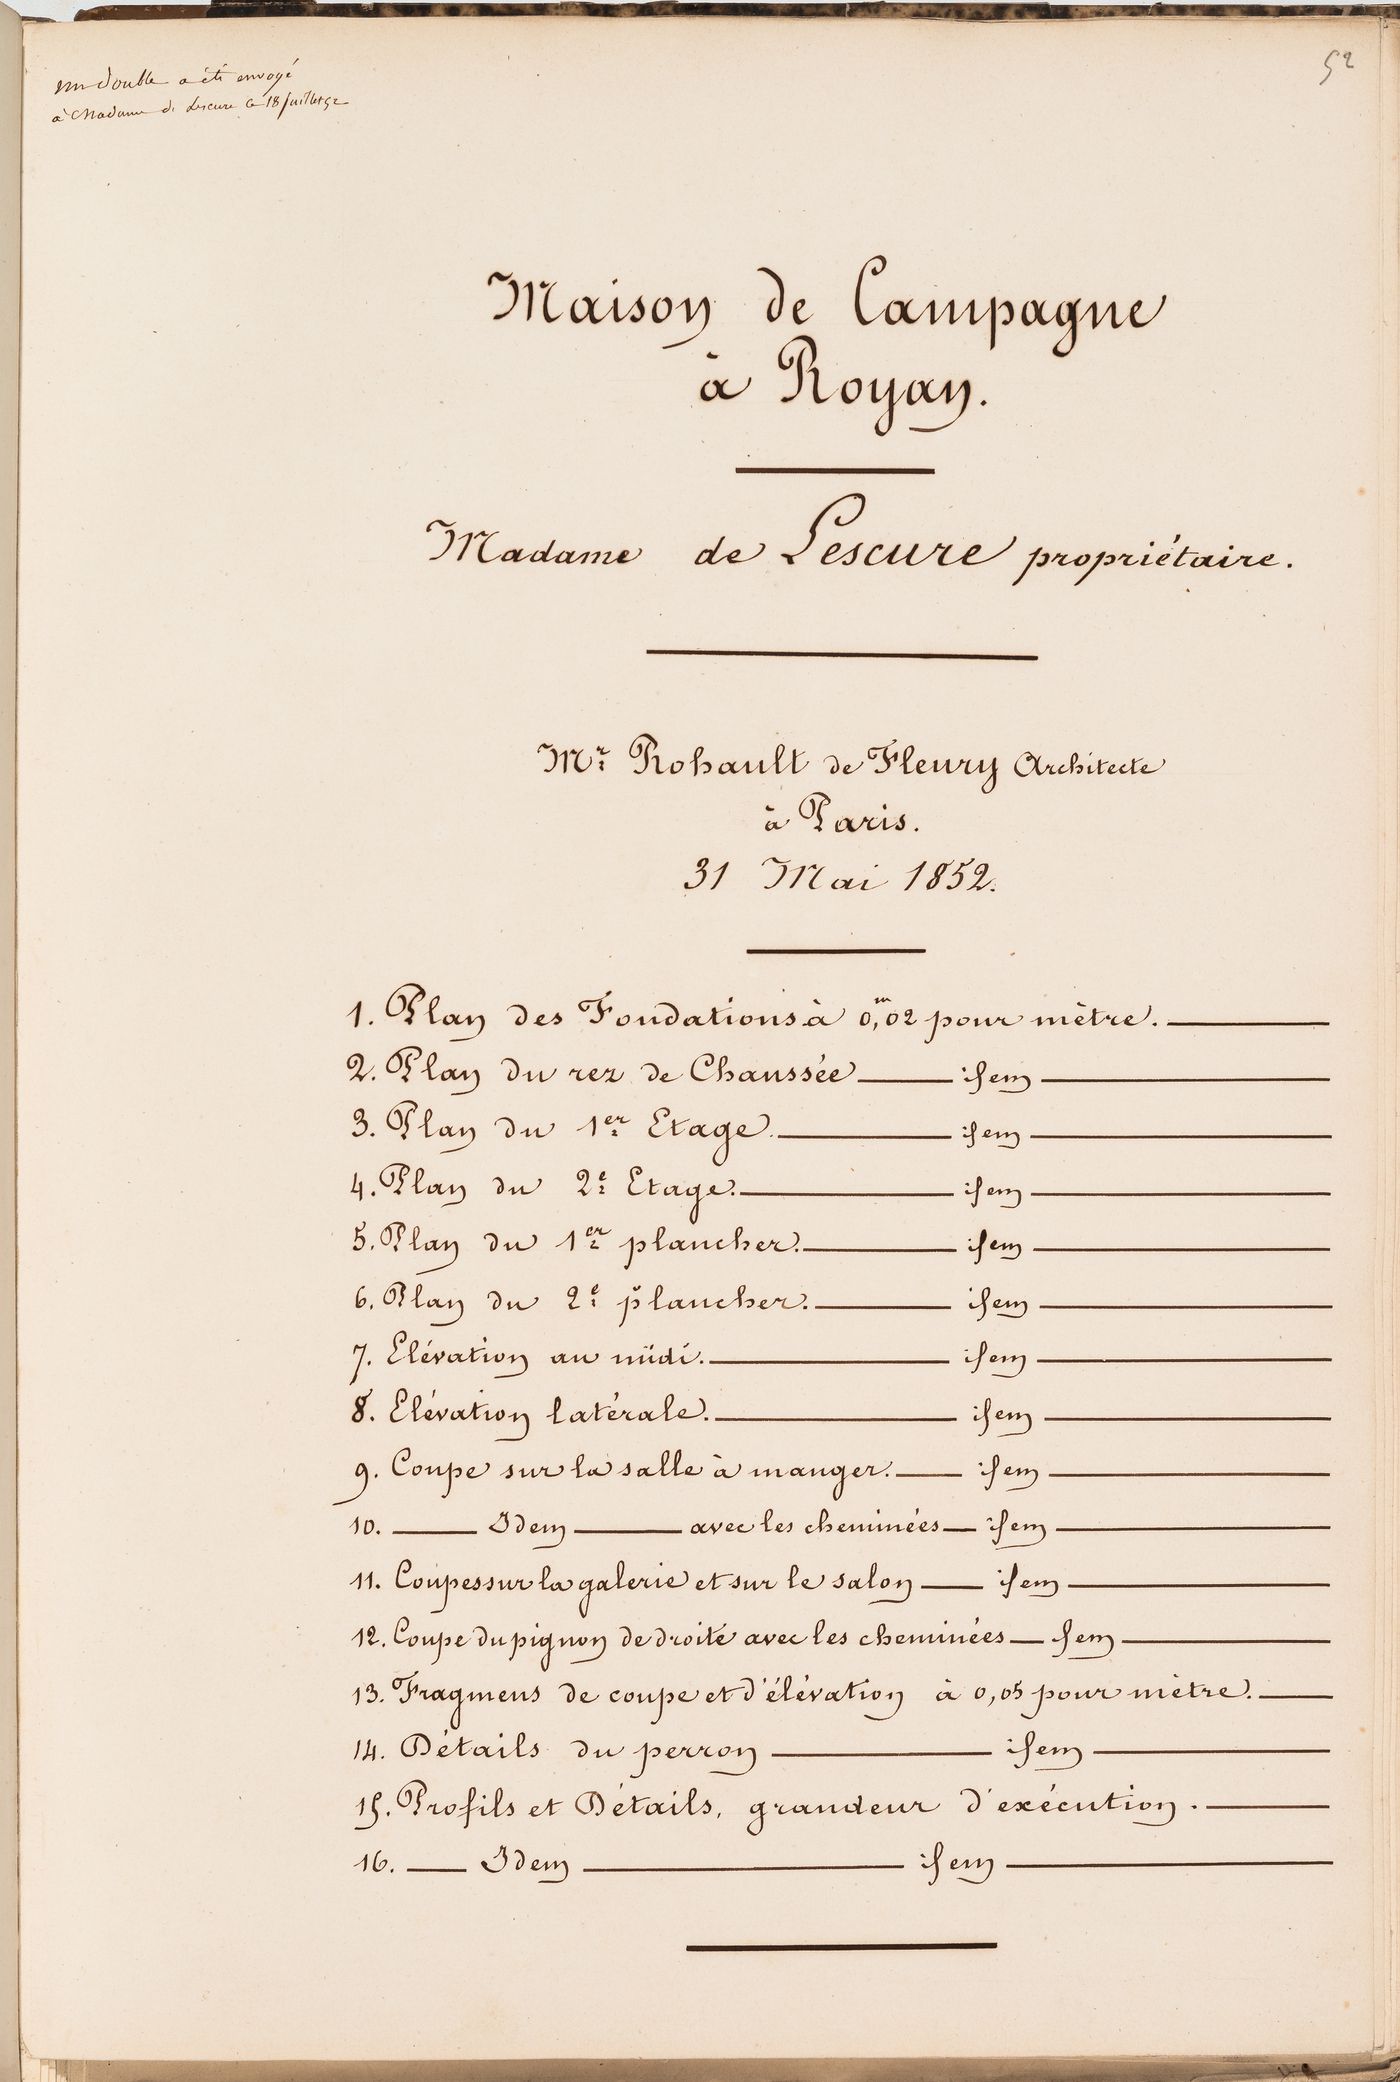 un double a été envoyé
à Madame de Lescure le 18 Juillet 52
52
Maison de Campagne
à Royan.
Madame de Lescure propriétaire.
Mr. Rohault de Fleury Architecte
à Paris.
31 Mai 1852.
1. Plan des Fondations à 0,m02 pour mètre.
2. Plan du rez de Chaussée idem
3. Plan du 1er Etage. idem
4. Plan du 2e Etage. idem
5. Plan du 1er plancher. idem
6. Plan du 2e plancher. idem
7. Elévation au midi. idem
8. Elévation latérale. idem
9. Coupe sur la salle à manger. idem
10. Idem avec les cheminées idem
11. Coupes sur la galerie et sur le salon idem
12. Coupe du pignon de droite avec les cheminées idem
13. Fragmens de coupe et d'élévation à 0,05 pour mètre.
14. Détails du perron idem
15. Profils et Détails, grandeur d'exécution.
16. Idem idem